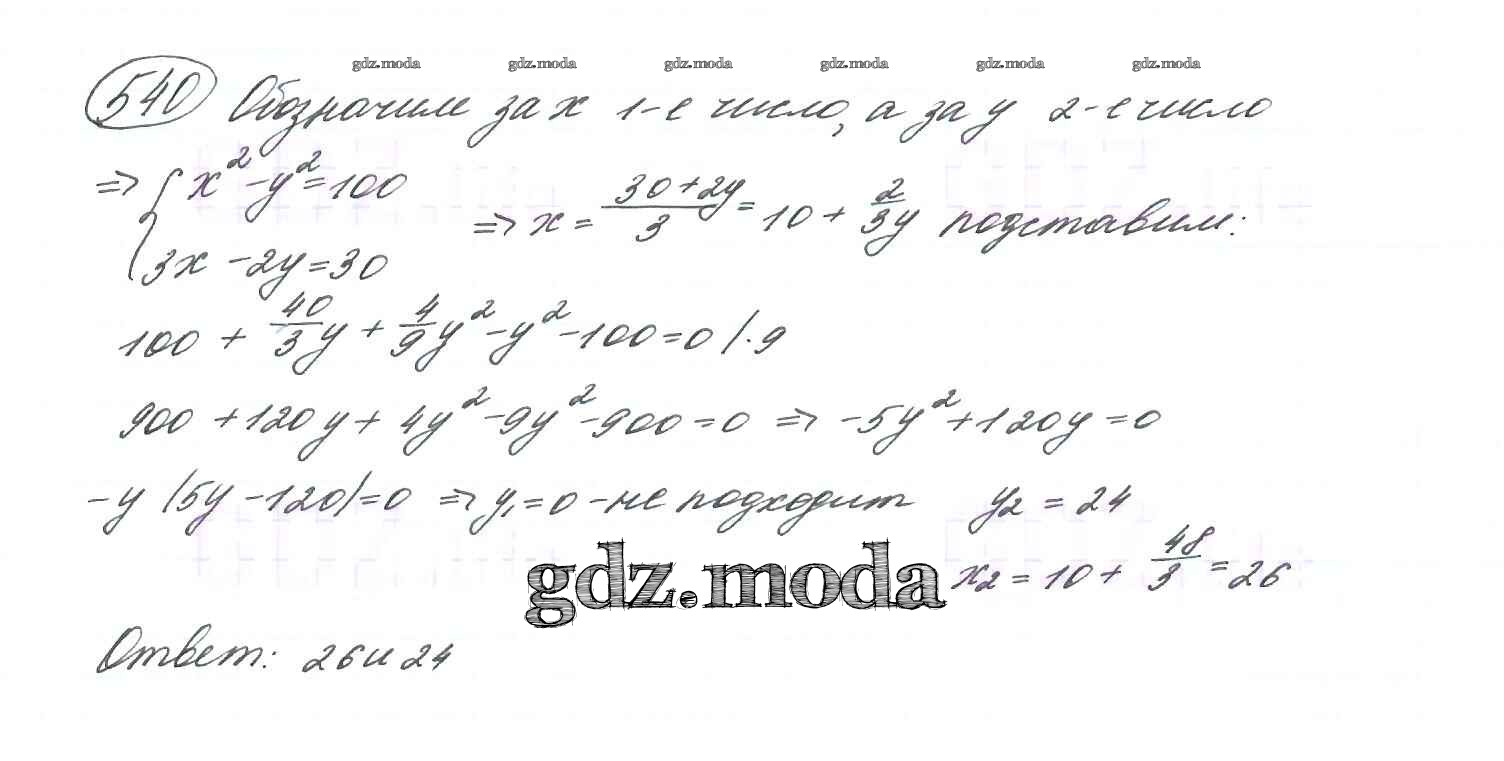 gdz.moda gdz.moda gdz.moda gdz.moda gdz.moda gdz.moda
540 Обозначим за x 1-е число, а за y 2-е число
=> { x² - y² = 100
3x - 2y = 30
=> x = (30+2y)/3 = 10 + 2/3y подставим:
100 + 40/3y + 4/9y² - y² - 100 = 0 /·9
900 + 120y + 4y² - 9y² - 900 = 0 => -5y² + 120y = 0
-y (5y - 120) = 0 => y₁ = 0 - не подходит y₂ = 24
x₂ = 10 + 48/3 = 26
gdz.moda
Ответ: 26 и 24